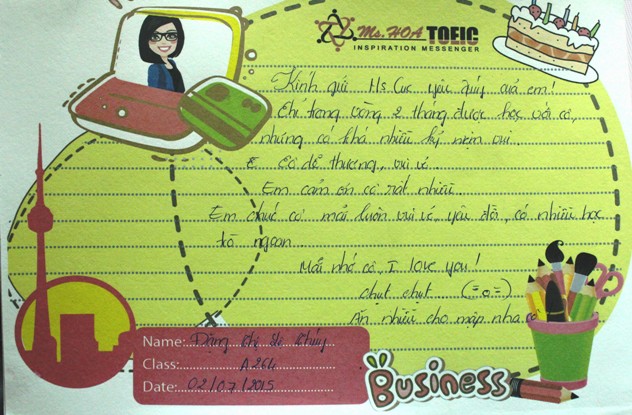 Ms.HOA TOEIC
INSPIRATION MESSENGER
Kính gửi Ms Cúc yêu quý của em!
Chỉ trong vòng 2 tháng được học với cô,
nhưng có khá nhiều kỷ niệm vui.
Cô dễ thương, vui vẻ
Em cảm ơn cô rất nhiều.
Em chúc cô mãi luôn vui vẻ, yêu đời, có nhiều học
trò ngoan.
Mãi nhớ cô, I love you!
chụt chụt (=o=)
Ăn nhiều cho mập nha cô
Name: Đặng Thị Thúy
Class: A264
Date: 02/07/2015
BUSINESS